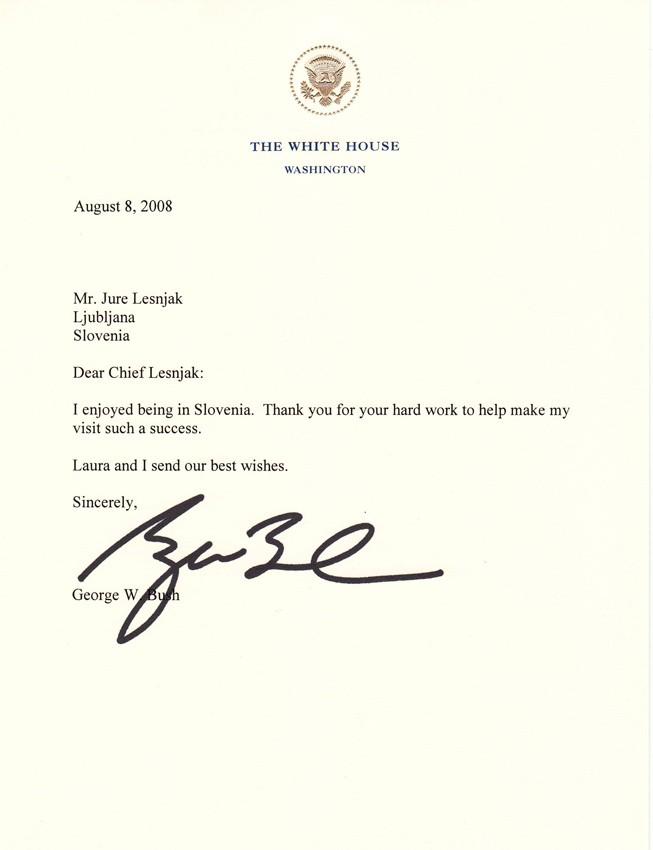 THE WHITE HOUSE
WASHINGTON
August 8, 2008
Mr. Jure Lesnjak
Ljubljana
Slovenia
Dear Chief Lesnjak:
I enjoyed being in Slovenia.  Thank you for your hard work to help make my
visit such a success.
Laura and I send our best wishes.
Sincerely,
George W. Bush